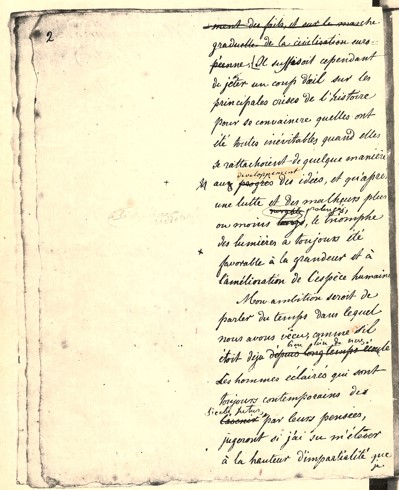 2
ment des faits, et sur la marche
graduelle de la civilisation euro-
péenne. Il suffisoit cependant
de jeter un coup d'œil sur les
principales crises de l'histoire
pour se convaincre quelles ont
été toutes inévitables quand elles
se rattachoient de quelque manière
développement
au progrès des idées, et qu'après
une lutte et des malheurs plus
ou moins prolongés, le triomphe
des lumières a toujours été
favorable à la grandeur et à
l'amélioration de l'espèce humaine
Mon ambition seroit de
parler du temps dans lequel
nous avons vécu, comme s'il
bien loin de nous
étoit déjà depuis longtemps écoulé
Les hommes éclairés qui sont
toujours contemporains des
siècles futurs
l'avenir par leurs pensées,
jugeront si j'ai su m'élever
à la hauteur d'impartialité que